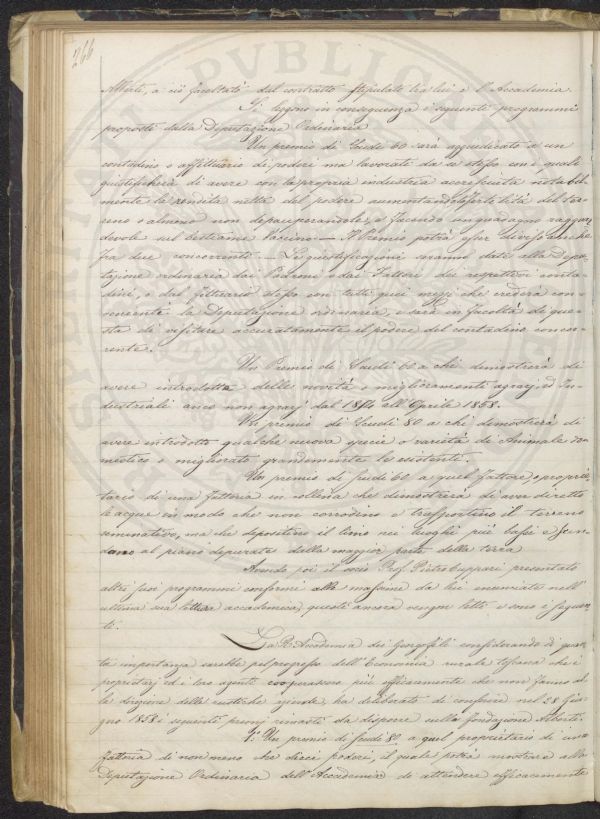 266
Alberti, a ciò facoltata dal contratto stipulato tra lui e l'Accademia.
Si leggono in conseguenza i seguenti programmi
proposti dalla Deputazione Ordinaria
Un premio di Scudi 60 sarà aggiudicato a un
contadino o affittuario di poderi ma lavorati da se stesso con i quali
giustificherà di avere con la propria industria accresciuta notabil-
mente la rendita netta del podere aumentando la fertilità del ter-
reno o almeno non depauperandolo, e facendo un guadagno ragguar
devole sul bestiame Vaccino — Il Premio potrà esser diviso anche
fra due concorrenti — Le giustificazioni saranno date alla Depu-
tazione ordinaria dai Padroni o dai Fattori dei rispettivi conta-
dini, o dal fittuario stesso con tutti quei mezzi che crederà con-
veniente la Deputazione ordinaria, e sarà in facoltà di que-
sta di visitare accuratamente il podere del contadino concor-
rente.
Un Premio di Scudi 60 a chi dimostrerà di
avere introdotte delle novità o miglioramenti agrarj, ed In-
dustriali anco non agrarj dal 1854 all'Aprile 1858.
Un premio di Scudi 80 a chi dimostrerà di
avere introdotto qualche nuova specie o varietà di Animale do-
mestico o migliorato grandemente le esistenti.
Un premio di scudi 60 a quel fattore, o proprie
tario di una fattoria in collina che dimostrerà di aver diretto
le acque in modo che non corrodino e trasportino il terreno
seminativo, ma che depositino il limo nei luoghi più bassi e scen-
dano al piano depurate dalla maggior parte della terra
Avendo poi il socio Prof. Pietro Cuppari presentato
altri suoi programmi conformi alle massime da lui enunciate nell'
ultima sua lettura accademica, questi ancora vengon letti e sono i seguen-
ti.
La R. Accademia dei Georgofili considerando di quan-
ta importanza sarebbe pel progresso dell'Economia rurale toscana che i
proprietarj ed i loro agenti cooperassero più efficacemente che non fanno al-
la direzione delle rustiche aziende, ha deliberato di conferire nel 28 Giu-
gno 1858 i seguenti premj rimasti da disporre sulla fondazione Alberti.
1.° Un premio di Scudi 80 a quel proprietario di una
fattoria di non meno che dieci poderi, il quale potrà mostrare alla
Deputazione Ordinaria dell'Accademia di attendere efficacemente